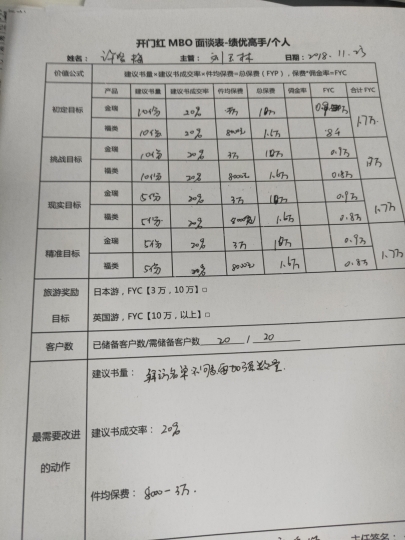 开门红 MBO 面谈表-绩优高手/个人
姓名： 主管： 日期： 2018.11.23
价值公式 建议书量×建议书成交率×件均保费=总保费（FYP），保费*佣金率=FYC
产品 建议书量 建议书成交率 件均保费 总保费 佣金率 FYC 合计 FYC
初定目标 金瑞 10份 20% 1.7万
福类 10份 20% 8000元 1.6万
挑战目标 金瑞 10份 20% 3万 0.9万
福类 10份 20% 8000元 1.6万 0.8万
现实目标 金瑞 5份 20% 3万 0.9万 1.7万
福类 5份 20% 1.6万 0.8万
精准目标 金瑞 5份 20% 3万 0.9万 1.7万
福类 5份 20% 8000元 1.6万 0.8万
旅游奖励 日本游，FYC【3 万，10 万】□
目标 英国游，FYC【10 万，以上】□
客户数 已储备客户数/需储备客户数 20 / 20
建议书量：
最需要改进 建议书成交率： 20%
的动作
件均保费： 8000-3万.
主任签名：